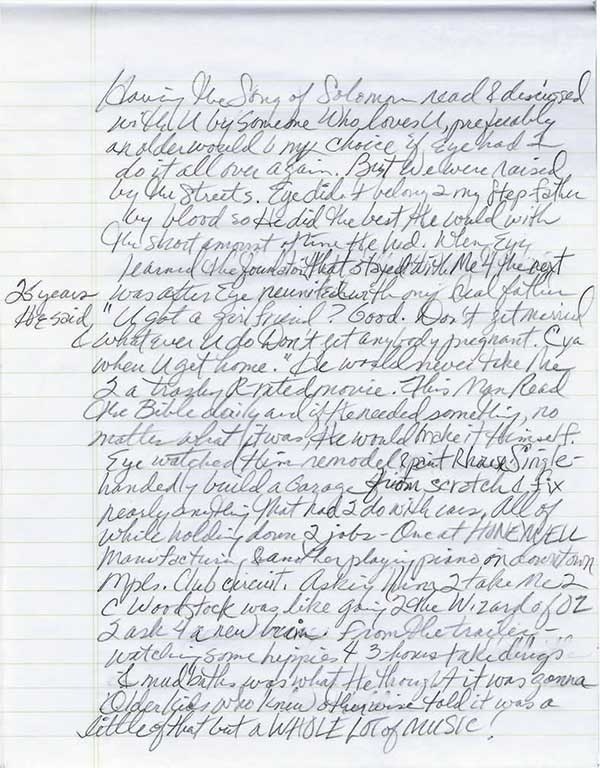 Having the Song of Solomon read & discussed
with U by someone Who loves U, preferably
an older would b my choice if Eye had 2
do it all over again. But We were raised
by the Streets. Eye didn't belong 2 my Step father
by blood so He did the best He could with
the short amount of time He had. When Eye
learned the foundation that stayed with Me 4 the next
25 years was after Eye reunited with my real father
He said, "U got a girlfriend? Good. Don't get married
& whatever U do Don't get anybody pregnant. C ya
when U get home." He would never take Me
2 a trashy R rated movie. This Man Read
the Bible daily and if He needed something, no
matter what it was, He would make it Himself.
Eye watched Him remodel & paint R house, Single-
handedly build a Garage from scratch & fix
nearly anything that had 2 do with cars. All of
while holding down 2 jobs - One at HONEYWELL
Manufacturing & another playing piano on downtown
Mpls. Club circuit. Asking Him 2 take Me 2
C Woodstock was like going 2 the Wizard of OZ
2 ask 4 a new brain. From the trailer -
watching some hippies 4 3-hours take "drugs"
& mud baths was what He thought it was gonna
Older kids who knew otherwise told it was a
little of that but a WHOLE LOT of MUSIC!